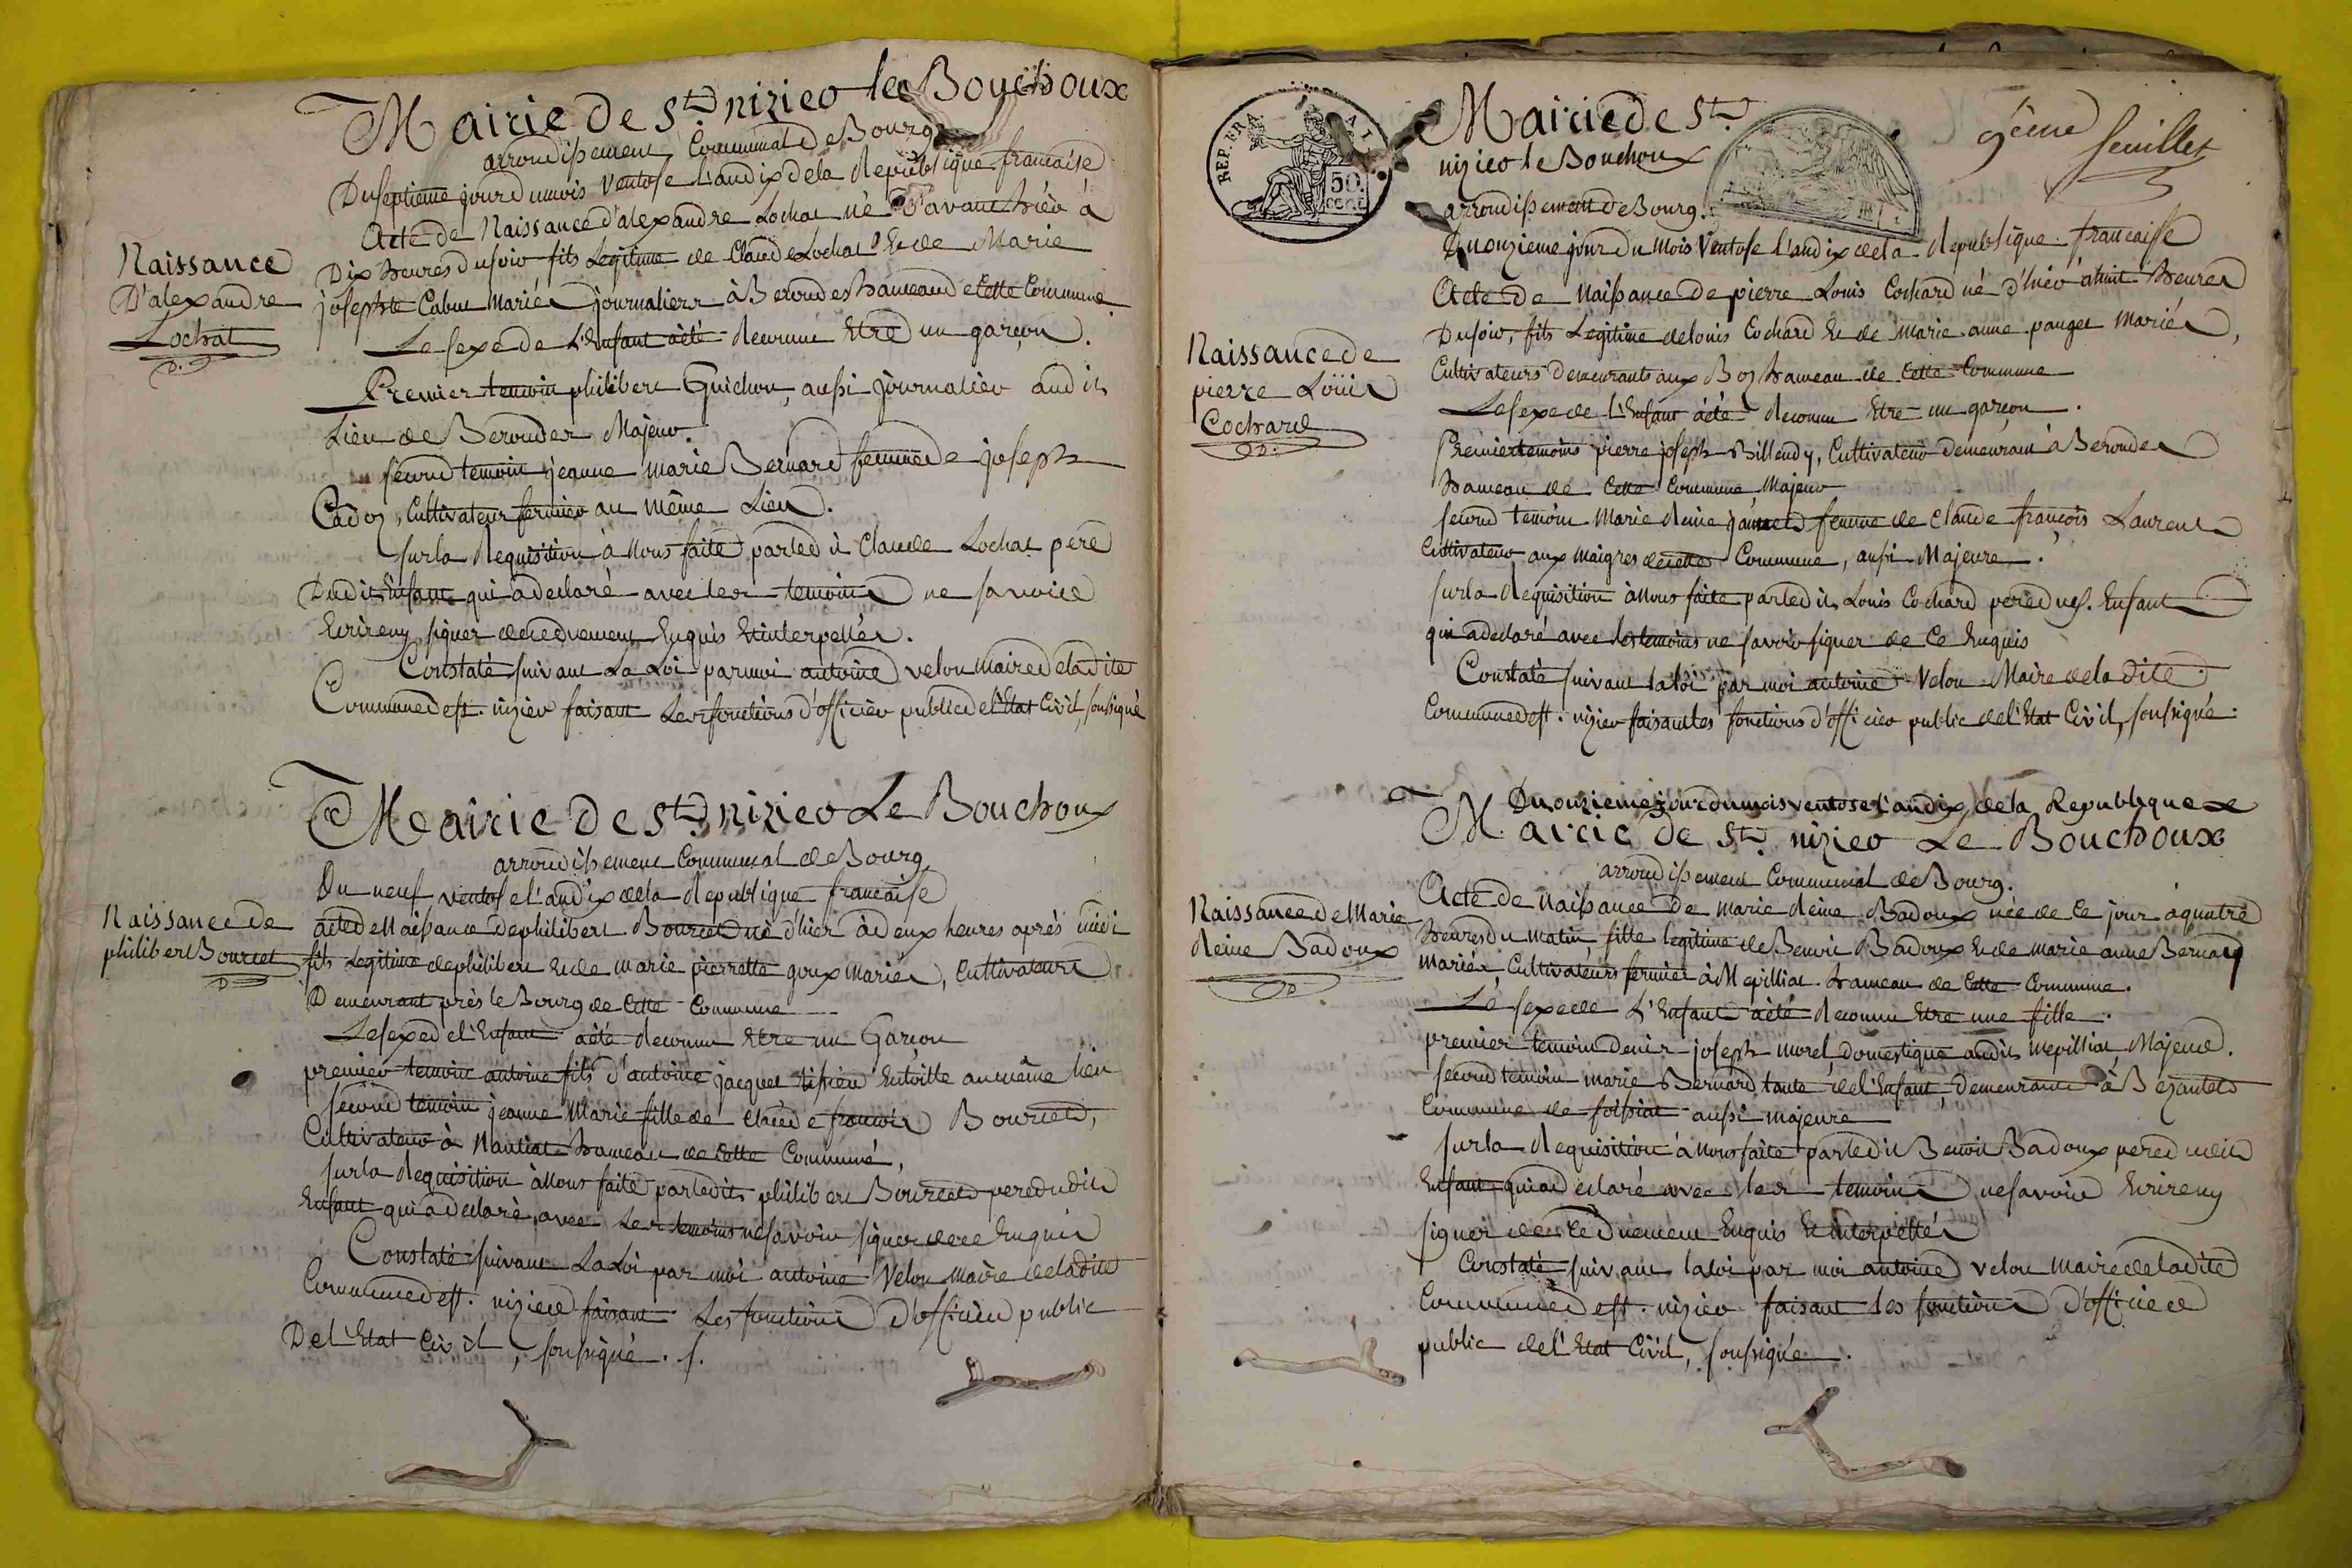 Mairie de St. nizier le Bouchoux
arrondissement Communal de Bourg
Du septieme jour du mois Ventose l'an dix de la Republique francaise
Acte de Naissance d'alexandre Lochat né d'avant hier à
Dix heures du soir fils Legitime de Claude Lochat & de Marie
josephte Cabut Mariés journaliers à Beroudes hameau de cette Commune
Naissance
D'alexandre
Lochat
Le sexe de L'Enfant a été Reconnu Etre un garçon.
Premier temoin philibert Guichon, aussi journalier au dit
Lieu de Beroudes Majeur.
second temoin jeanne marie Bernard femme de joseph
Cadoz, Cultivateur fermier au même Lieu.
sur la Requisition à Nous faite par led it Claude Lochat pere
Dudit Enfant qui a declaré avec les temoins ne savoir
Ecrire ny signer de ce duement Enquis & interpellés.
Constaté suivant La Loi par moi antoine velon maire de la dite
Commune de st. nizier faisant Les fonctions d'officier public de l'Etat Civil, soussigné
Mairie de St. nizier Le Bouchoux
arrondissement Communal de Bourg
Du neuf ventose l'an dix de la Republique francaise
Naissance de
philibert Bourcet
acte de Naissance de philibert Bourcet né d'hier à deux heures après midi
fils Legitime de philibert & de marie pierrette goux mariés, Cultivateurs
Demeurant près le Bourg de Cette Commune
Le sexe de l'Enfant a été Reconnu Etre un Garçon
premier temoin antoine fils d'antoine jacquet au même lieu
second temoin jeanne Marie fille de Claude francois Bourcet,
Cultivateur à Nantiat hameau de Cette Commune,
sur la Requisition à Nous faite par ledit philibert Bourcet pere dudit
Enfant qui a declaré avec Les temoins ne savoir signer de ce Enquis
Constaté suivant La Loi par moi antoine Velon Maire de la dite
Commune de st. nizier faisant Les fonctions d'officier public
De l'Etat Civil, soussigné. s.
REP. FRA.
50
cent
9ème
feuillet
Mairie de St.
nizier le Bouchoux
arrondissement de Bourg.
Du onzieme jour du Mois Ventose l'an dix de la Republique francaisse
Acte de Naissance de pierre Louis Cochard né d'hier à huit heures
Du soir, fils Legitime de Louis Cochard & de Marie anne pauget Mariés,
Naissance de
pierre Loüis
Cochard
Cultivateurs demeurants aux Boz hameau de Cette Commune
Le sexe de l'Enfant a été Reconnu Etre un garçon.
Premier temoins pierre joseph Billendy, Cultivateur demeurant à Beroudes
hameau de Cette Commune Majeur
second temoin Marie Reine femme de Claude françois Laurent
Cultivateur aux Maigres de cette Commune, aussi Majeure.
sur la Requisition à Nous faite par led it Louis Cochard pere du st. Enfant
qui a declaré avec les temoins ne savoir signer de Ce Enquis
Constaté suivant la loi par moi antoine Velon Maire de la dite
Commune de st. nizier faisant les fonctions d'officier public de l'Etat Civil, soussigné.
Du onzieme jour du mois ventose l'an dix de la Republique
Mairie de St. nizier Le Bouchoux
arrondissement Communal de Bourg.
Naissance de Marie
Reine Badoux
Acte de Naissance De marie Reine Badoux née de ce jour à quatre
heures du matin fille legitime de Benoit Badoux & de marie anne Bernard
mariés, Cultivateurs fermier à Mepilliat hameau de Cette Commune.
Le sexe de L'Enfant a été Reconnu Etre une fille.
premier temoin denis joseph morel domestique audit Mepilliat, Majeur.
second temoin marie Bernard, tante de l'Enfant, demeurante à Bezantet
Commune de foissiat aussi majeure
sur la Requisition à Nous faite par ledit Benoit Badoux pere dudit
Enfant, qui a declaré avec les temoins ne savoir Ecrire ny
signer de ce duement Enquis & interpellés
Constaté suivant la loi par moi antoine velon maire de la dite
Commune de st. nizier faisant les fonctions d'officier
public de l'Etat Civil, soussigné.